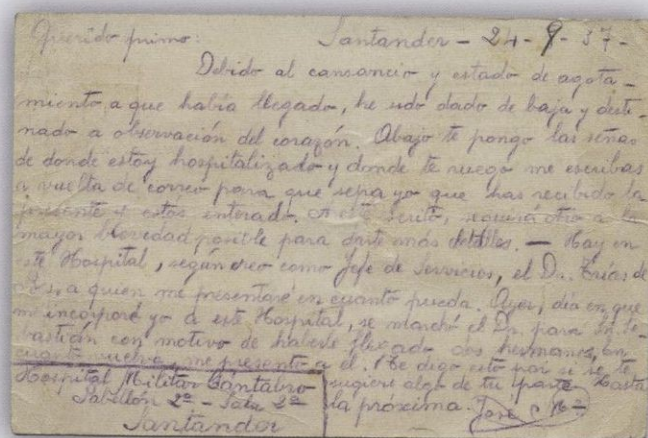 Querido primo: Santander - 24-9-37-
Debido al cansancio y estado de agota-
miento a que había llegado, he sido dado de baja y desti-
nado a observación del corazón. Abajo te pongo las señas
de donde estoy hospitalizado y donde te ruego me escribas
a vuelta de correo para que sepa yo que has recibido la
presente y estás enterado. A este escrito, seguirá otro a la
mayor brevedad posible para darte más detalles. — Hay en
este Hospital, según creo como Jefe de Servicios, el Dr. Trías de
a quien me presentaré en cuanto pueda. Ayer, día en que
me incorporé yo a este Hospital, se marchó el Dr. para Sn. Se-
bastián con motivo de haberle llegado dos hermanos, En
cuanto vuelva, me presento a el. (Te digo esto por si se te
sugiere algo de tu parte. Hasta
la próxima. José
Hospital Militar Cántabro
Pabellón 2º - Sala 2ª
Santander